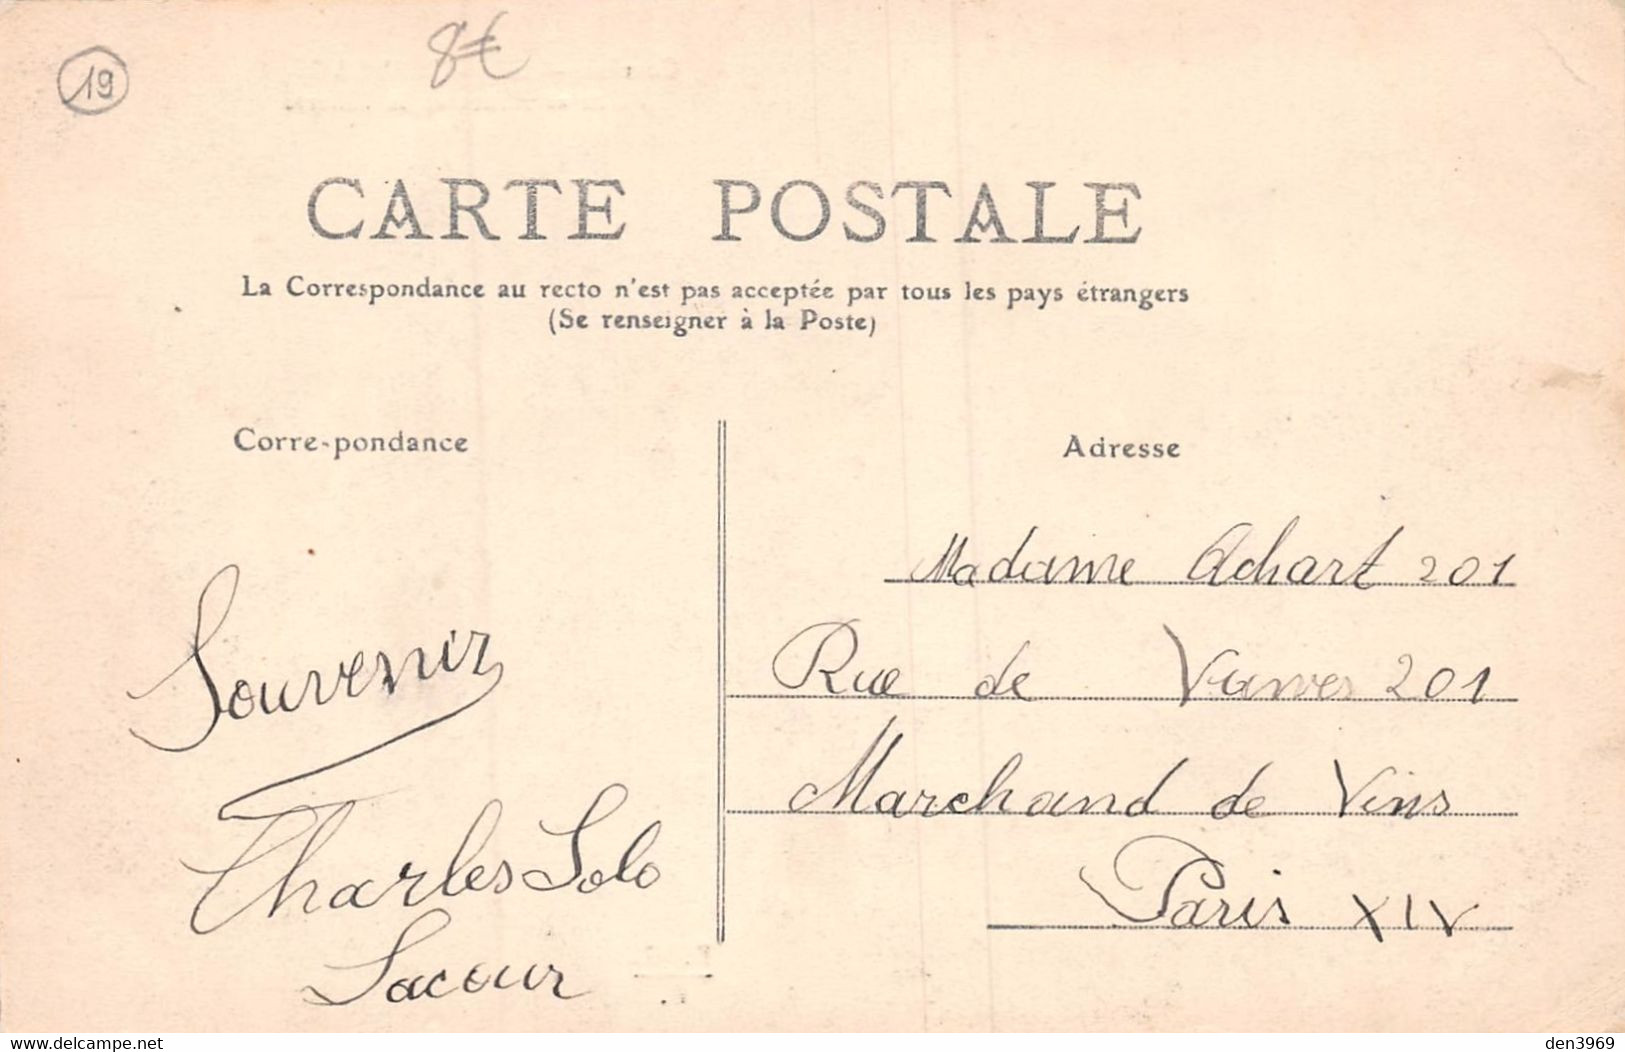 19
8€
CARTE POSTALE
La Correspondance au recto n'est pas acceptée par tous les pays étrangers
(Se renseigner à la Poste)
Corre-pondance
Souvenir
Charles Solo
Lacour
Adresse
Madame Achart 201
Rue de Vanves 201
Marchand de Vins
Paris XIV
www.delcampe.net
den3969